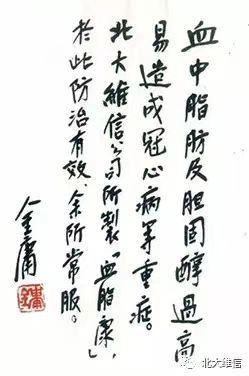 血中脂肪及胆固醇過高
易造成冠心病等重症。
北大維信公司所製「血脂康」，
於此防治有效，余所常服。
金庸
北大维信